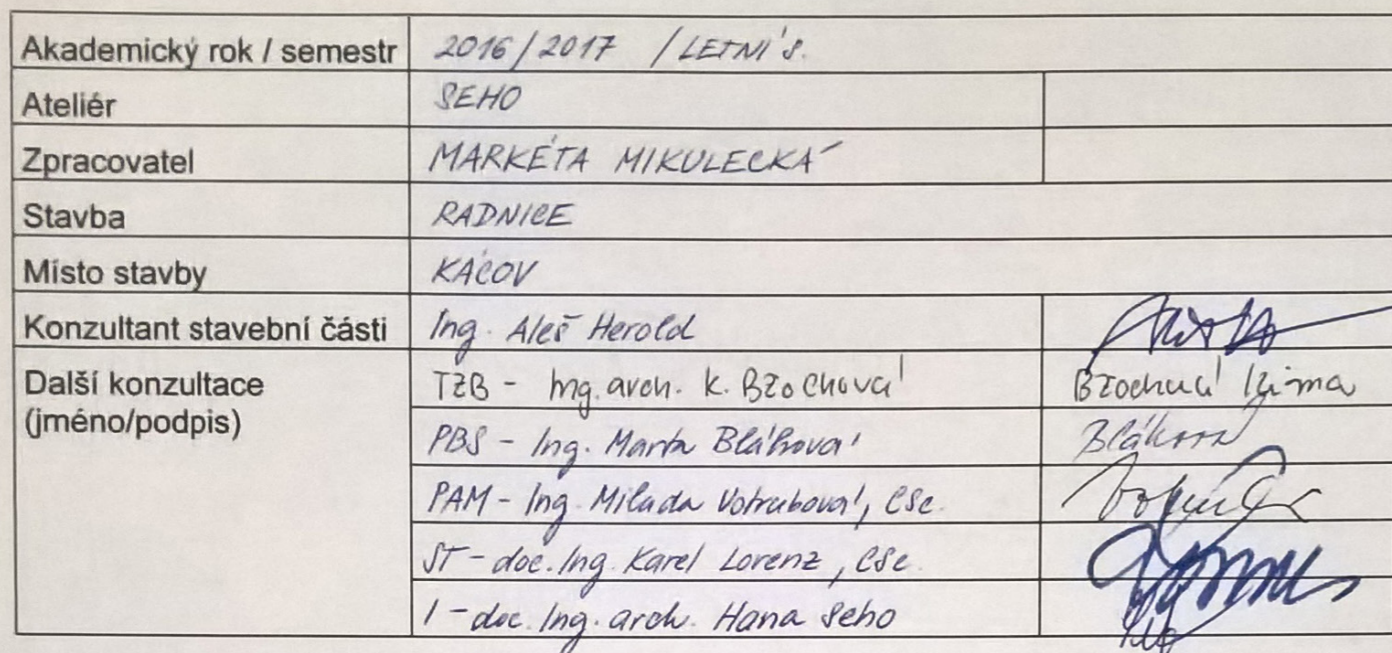 Akademický rok / semestr 2016/2017 / LETNÍ S.
Ateliér SEHO
Zpracovatel MARKÉTA MIKULECKÁ
Stavba RADNICE
Místo stavby KÁCOV
Konzultant stavební části Ing. Aleš Herold
Další konzultace TZB - Ing. arch. K. Bžochová
(jméno/podpis)
PBS - Ing. Marta Bláhová Bláhová
PAM - Ing. Milada Votrubová, CSc.
ST - doc. Ing. Karel Lorenz, CSc.
I - doc. Ing. arch. Hana Seho